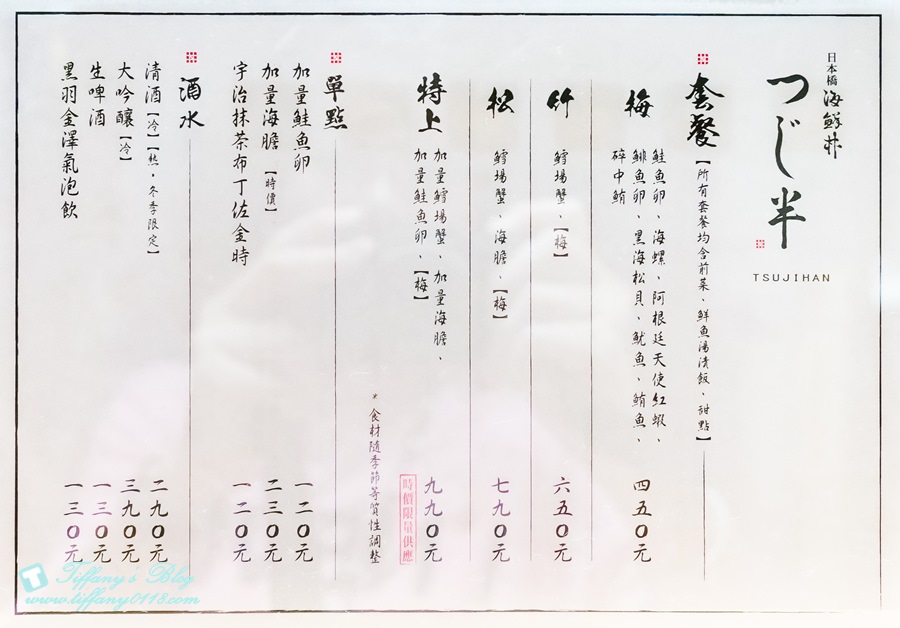 日本橋 海鮮丼
つじ半
TSUJIHAN
套餐
【所有套餐均含前菜、鮮魚湯漬飯、甜點】
梅
鮭魚卵、海螺、阿根廷天使紅蝦、
鯡魚卵、黑海松貝、魷魚、鮪魚、
碎中鮪
四五0元
竹
鱈場蟹、【梅】
六五0元
松
鱈場蟹、海膽、【梅】
七九0元
特上
加量鱈場蟹、加量海膽、
加量鮭魚卵、【梅】
九九0元
時價限量供應
*食材隨季節等質性調整
單點
加量鮭魚卵
一二0元
加量海膽【時價】
二三0元
宇治抹茶布丁佐金時
一二0元
酒水
清酒【冷】【熱·冬季限定】
二九0元
大吟釀【冷】
三九0元
生啤酒
一三0元
黑羽金澤氣泡飲
一三0元
Tiffany's Blog
www.tiffany0118.com